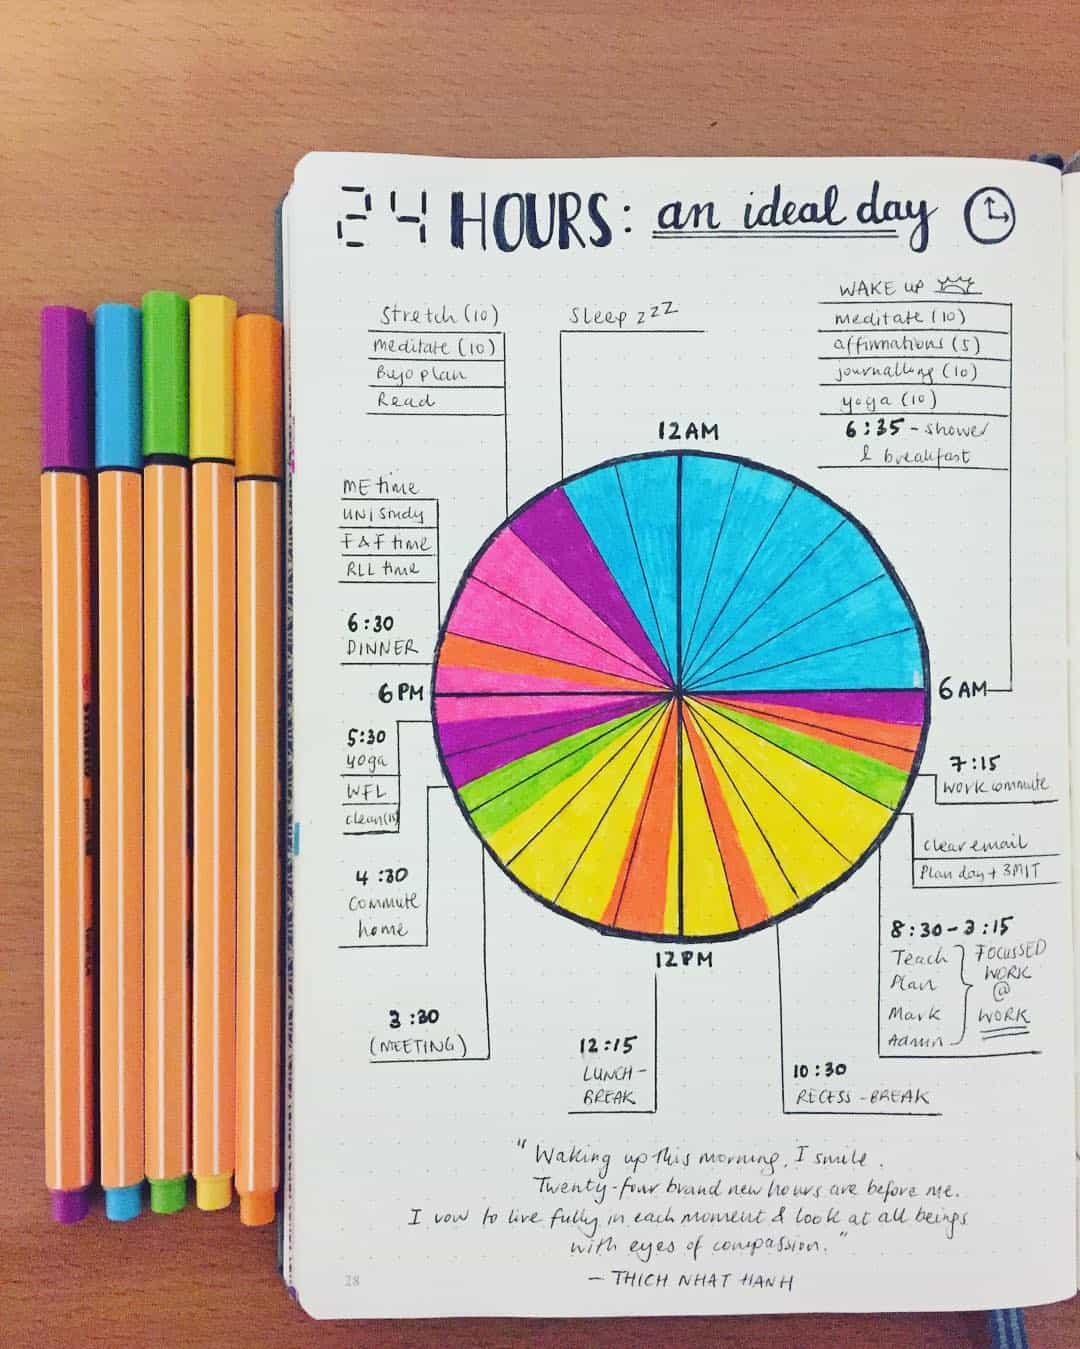 24 HOURS: an ideal day
Stretch (10)
meditate (10)
Bujo plan
Read
Sleep zzz
WAKE UP
meditate (10)
affirmations (5)
journalling (10)
yoga (10)
6:35 - shower
& breakfast
12 AM
ME time
UNI study
FAF time
RLL time
6:30
DINNER
6 PM
6 AM
5:30
yoga
WFL
clean (15)
7:15
work commute
clear email
Plan day + 3MIT
4:30
commute
home
8:30-3:15
Teach
Plan
Mark
Admin
FOCUSSED
WORK
@
WORK
12 PM
3:30
(MEETING)
12:15
LUNCH-
BREAK
10:30
RECESS-BREAK
"Waking up this morning, I smile.
Twenty-four brand new hours are before me.
I vow to live fully in each moment & look at all beings
with eyes of compassion."
- THICH NHAT HANH
28